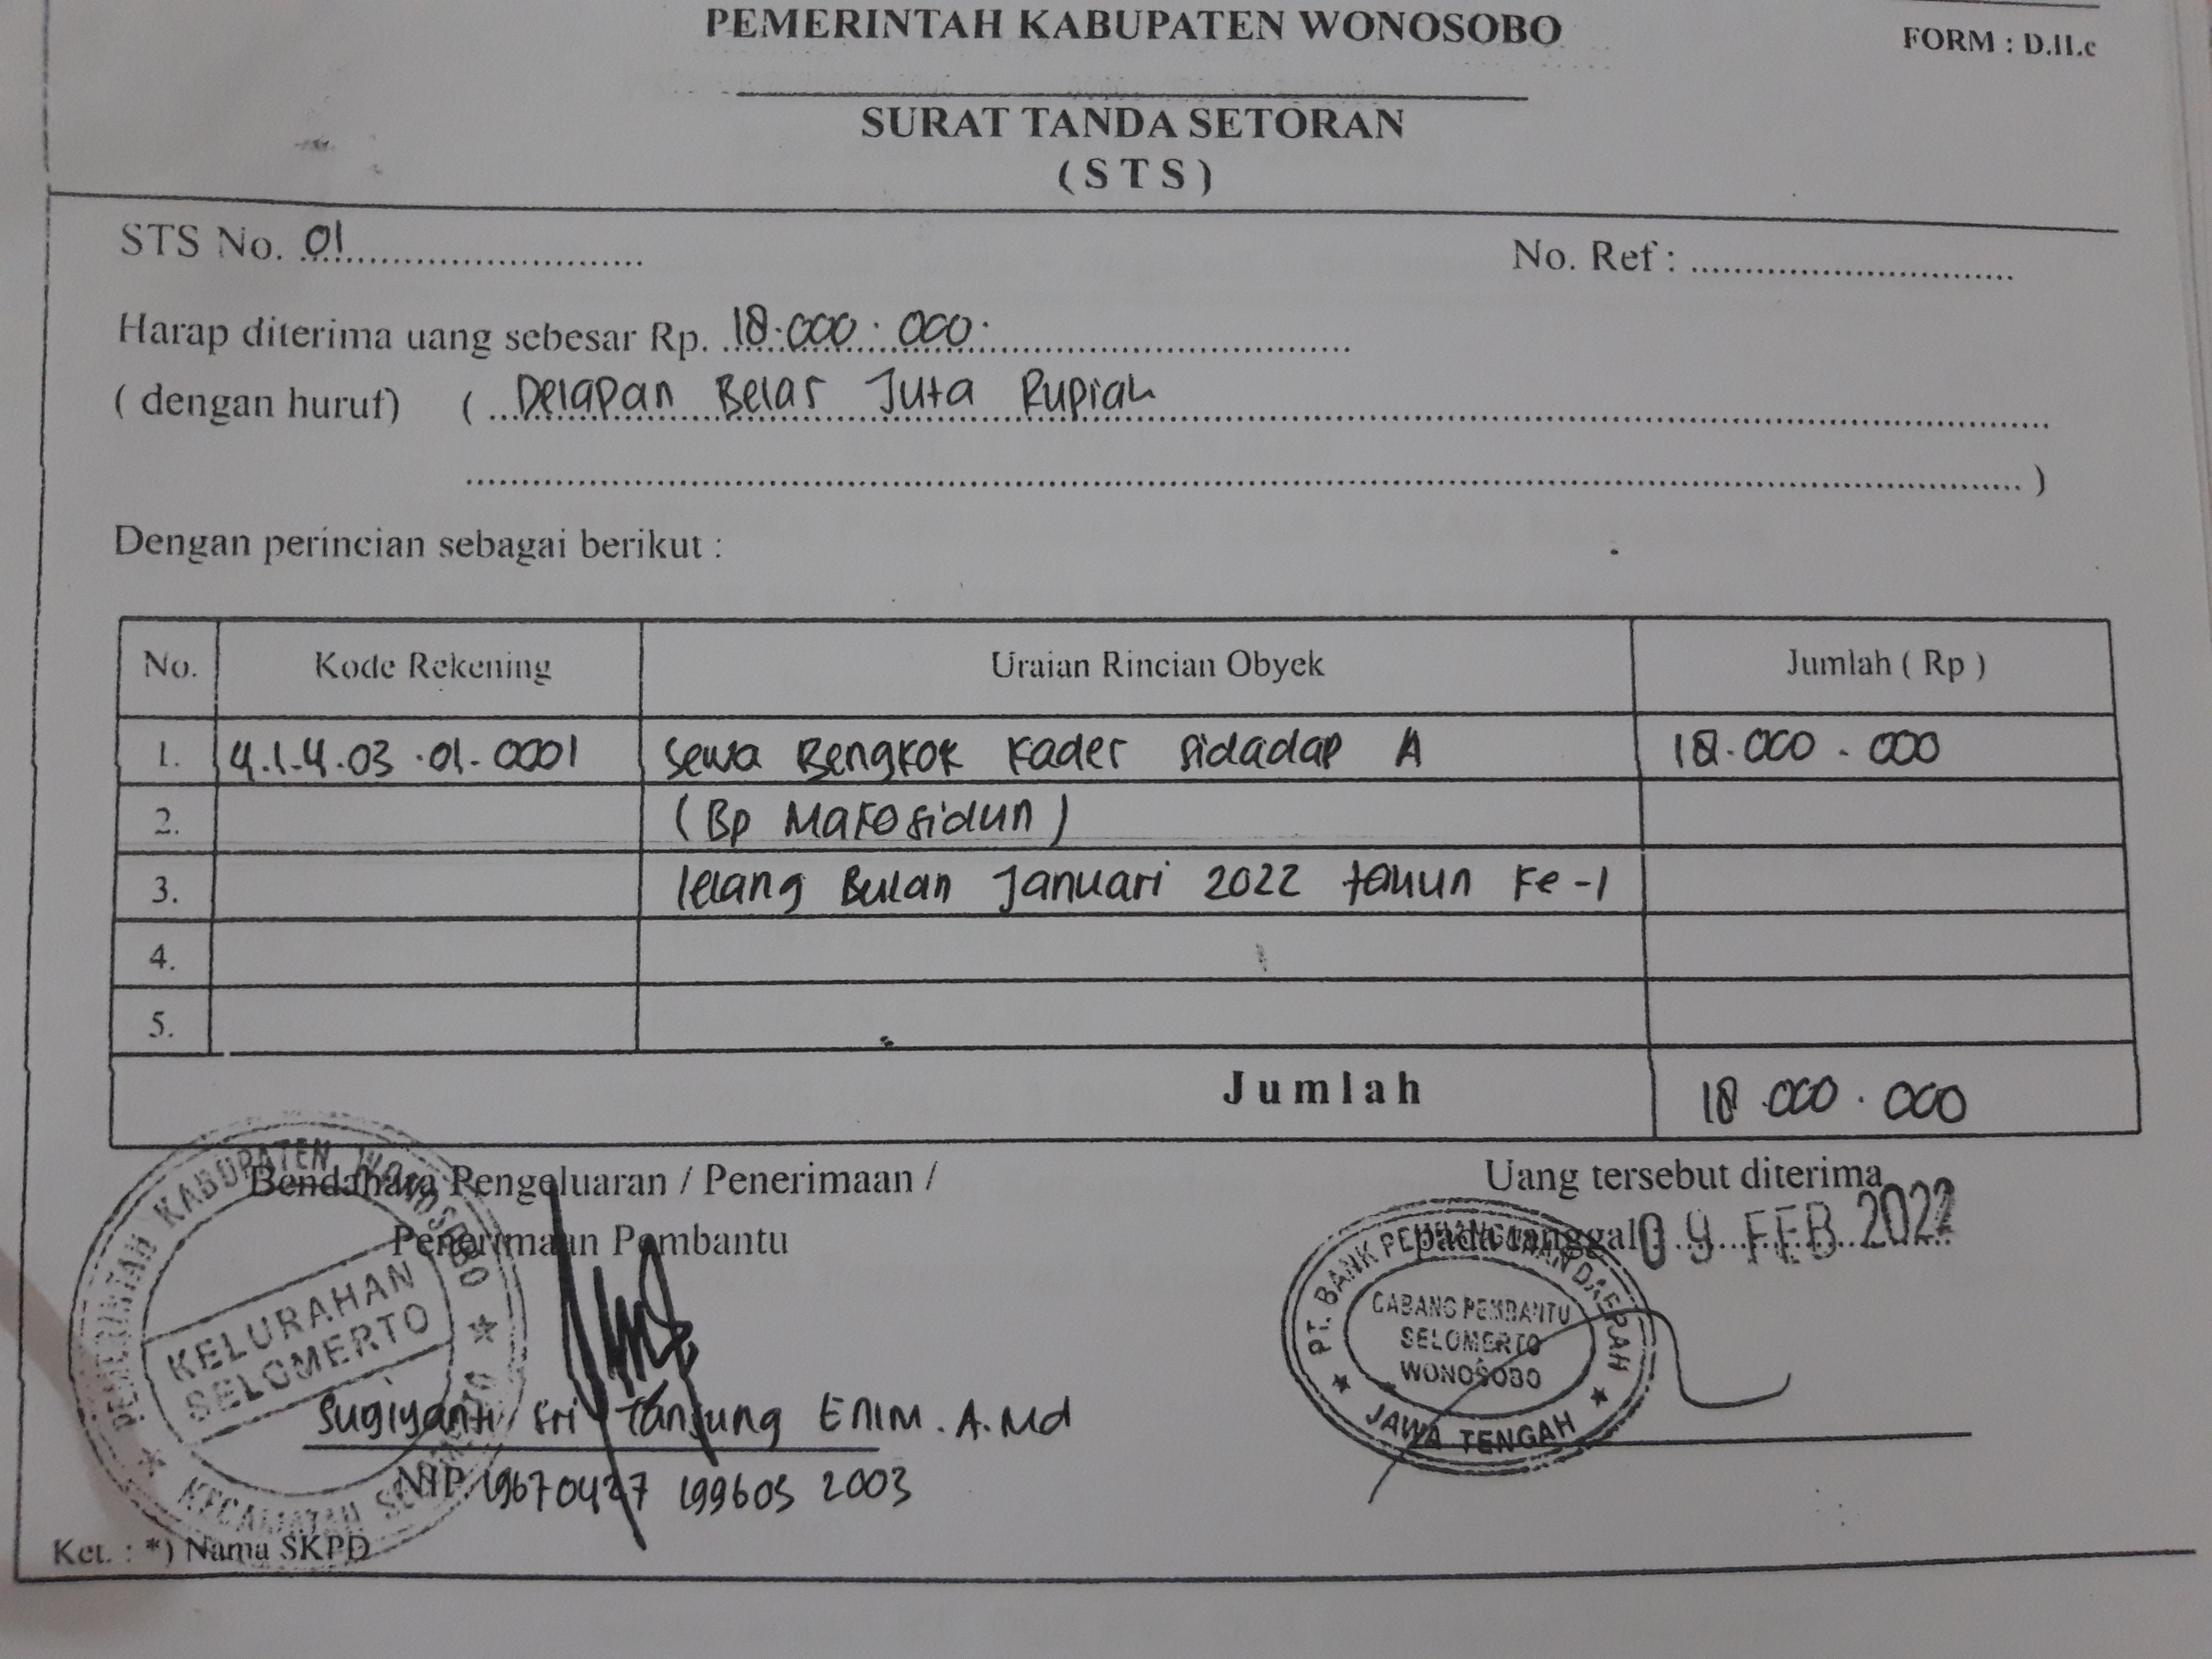 PEMERINTAH KABUPATEN WONOSOBO
FORM : D.II.c
SURAT TANDA SETORAN
( S T S )
STS No. 01
No. Ref :
Harap diterima uang sebesar Rp. 18.000.000.
( dengan huruf) ( Delapan Belas Juta Rupiah
)
Dengan perincian sebagai berikut :
No. Kode Rekening Uraian Rincian Obyek Jumlah ( Rp )
1. 4.1.4.03.01.0001 Sewa Bengkok Kader Sidadap A 18.000.000
2. (Bp Marosidun)
3. lelang Bulan Januari 2022 tahun ke-1
4.
5.
Jumlah 18.000.000
Bendahara Pengeluaran / Penerimaan /
Penerimaan Pembantu
Uang tersebut diterima
pada tanggal 09 FEB 2022
PEMERINTAH KABUPATEN WONOSOBO
KELURAHAN
SELOMERTO
KECAMATAN SELOMERTO
PT. BANK PEMBANGUNAN DAERAH
CABANG PEMBANTU
SELOMERTO
WONOSOBO
JAWA TENGAH
Sugiyanti Sri Tanjung Enim. A.Md
NIP. 19670427 199603 2003
Ket. : *) Nama SKPD